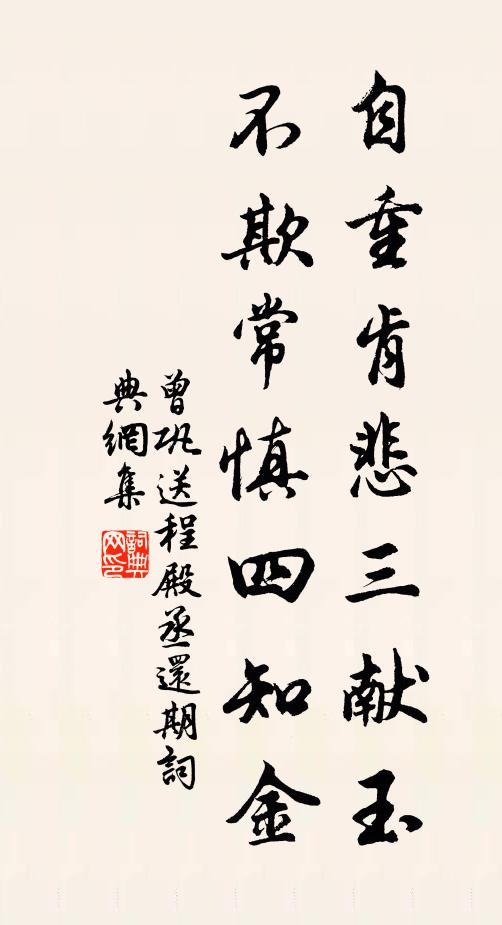 自重肯悲三献玉
不欺常慎四知金
曾巩送程殿丞還期詞
典網集
詞典
网印